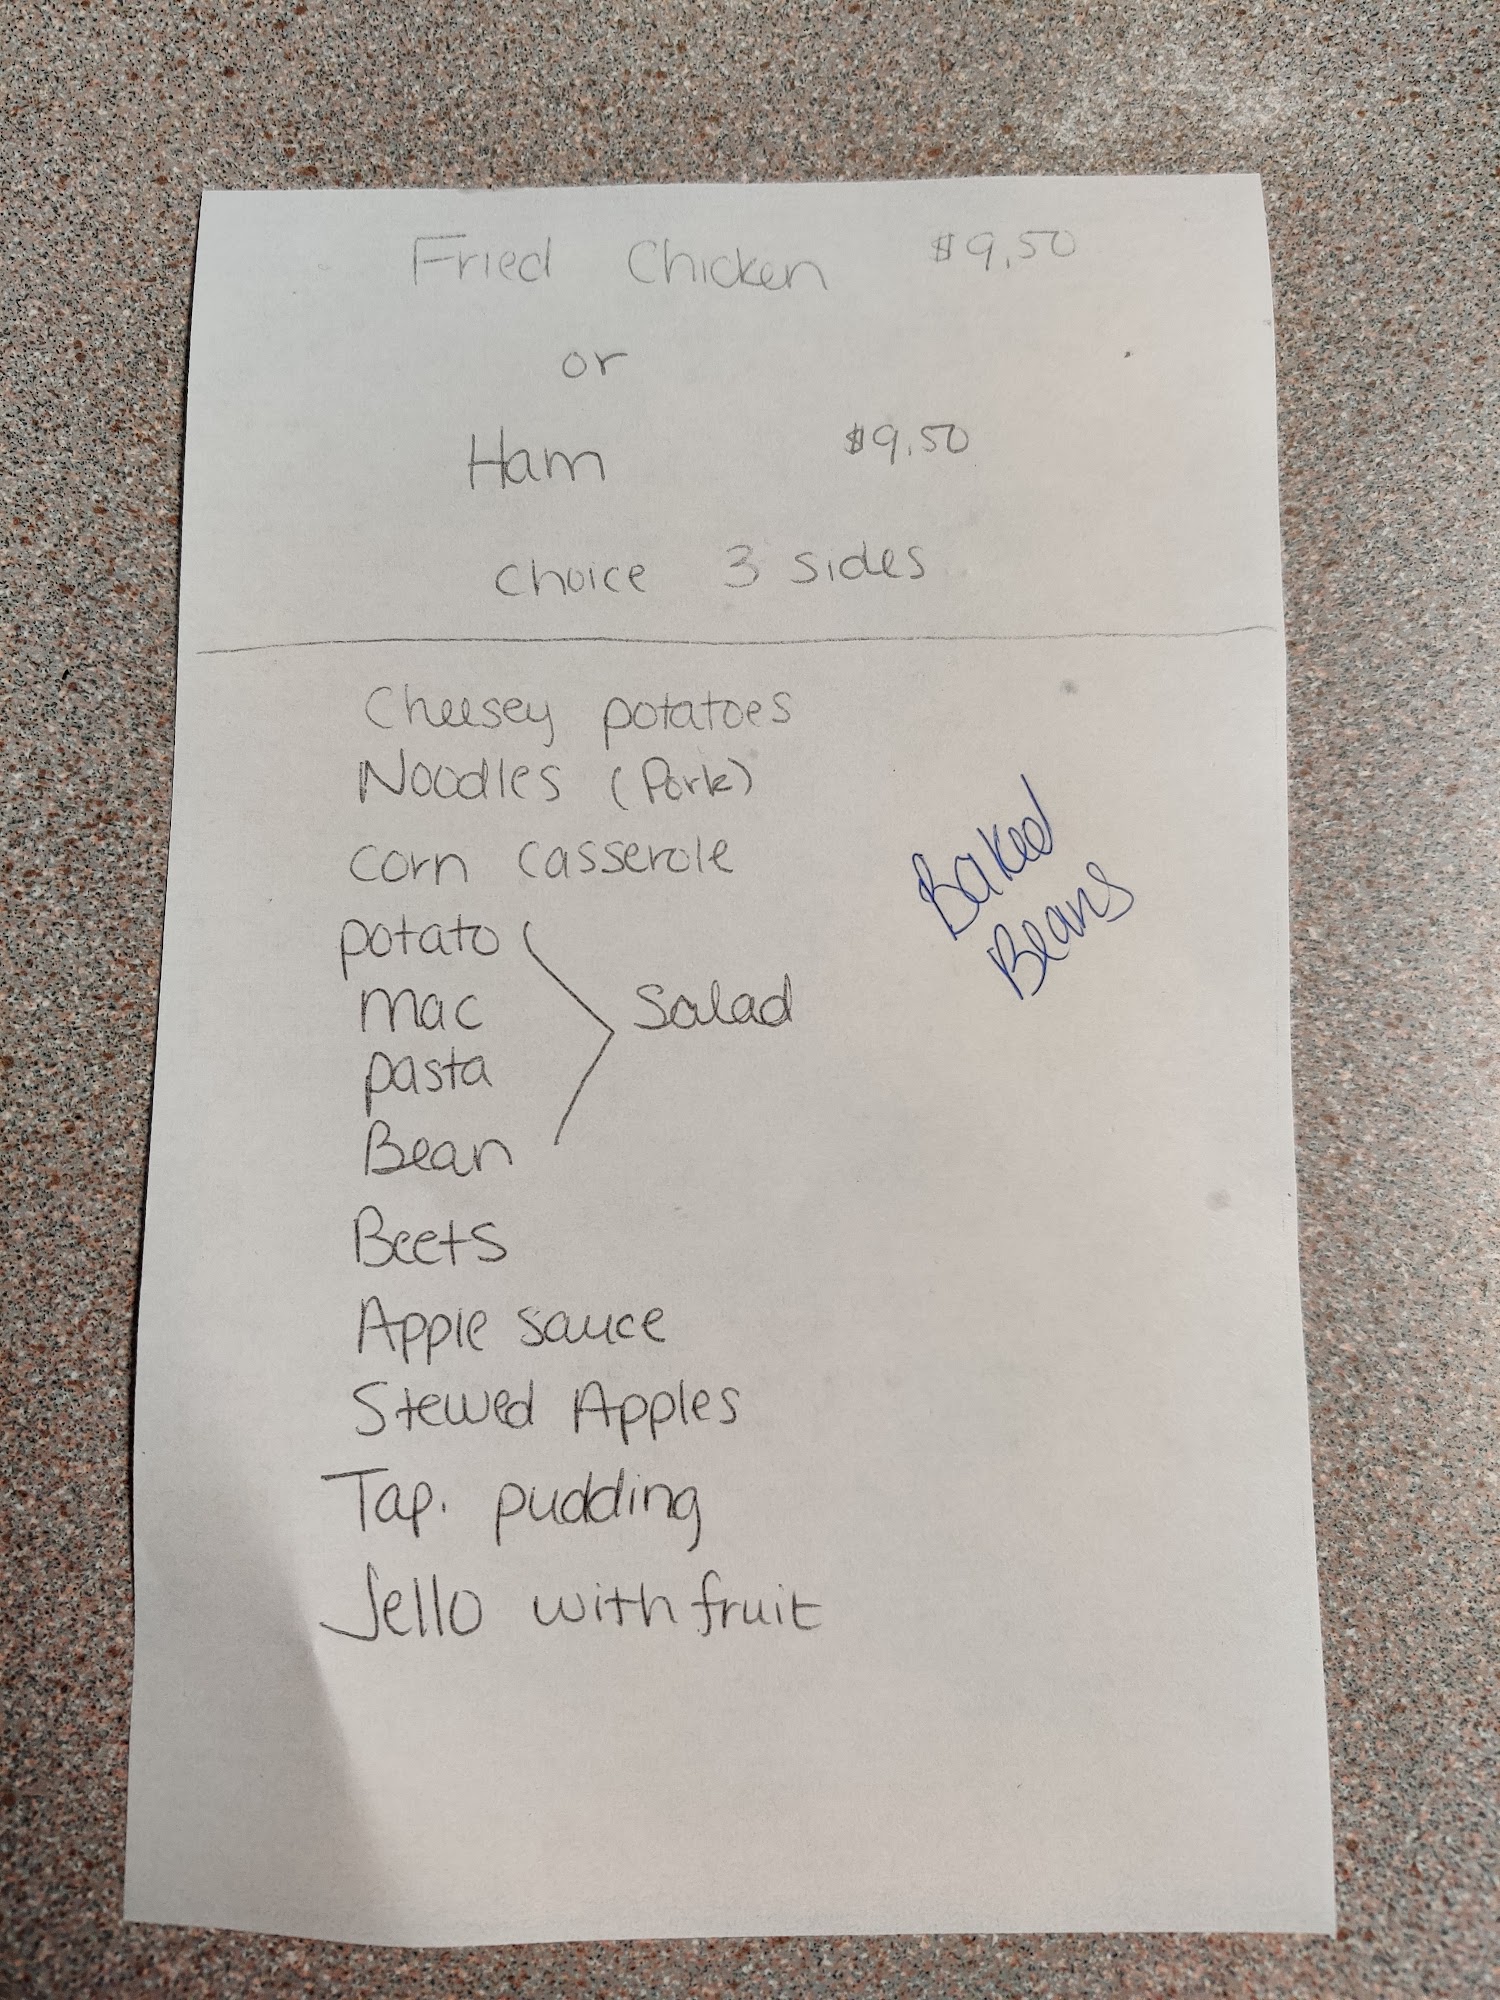 Fried Chicken $9.50
or
Ham $9.50
choice 3 sides
Cheesey potatoes
Noodles (Pork)
corn casserole
potato
mac
pasta
Bean
Salad
Baked
Beans
Beets
Apple sauce
Stewed Apples
Tap. pudding
Jello with fruit